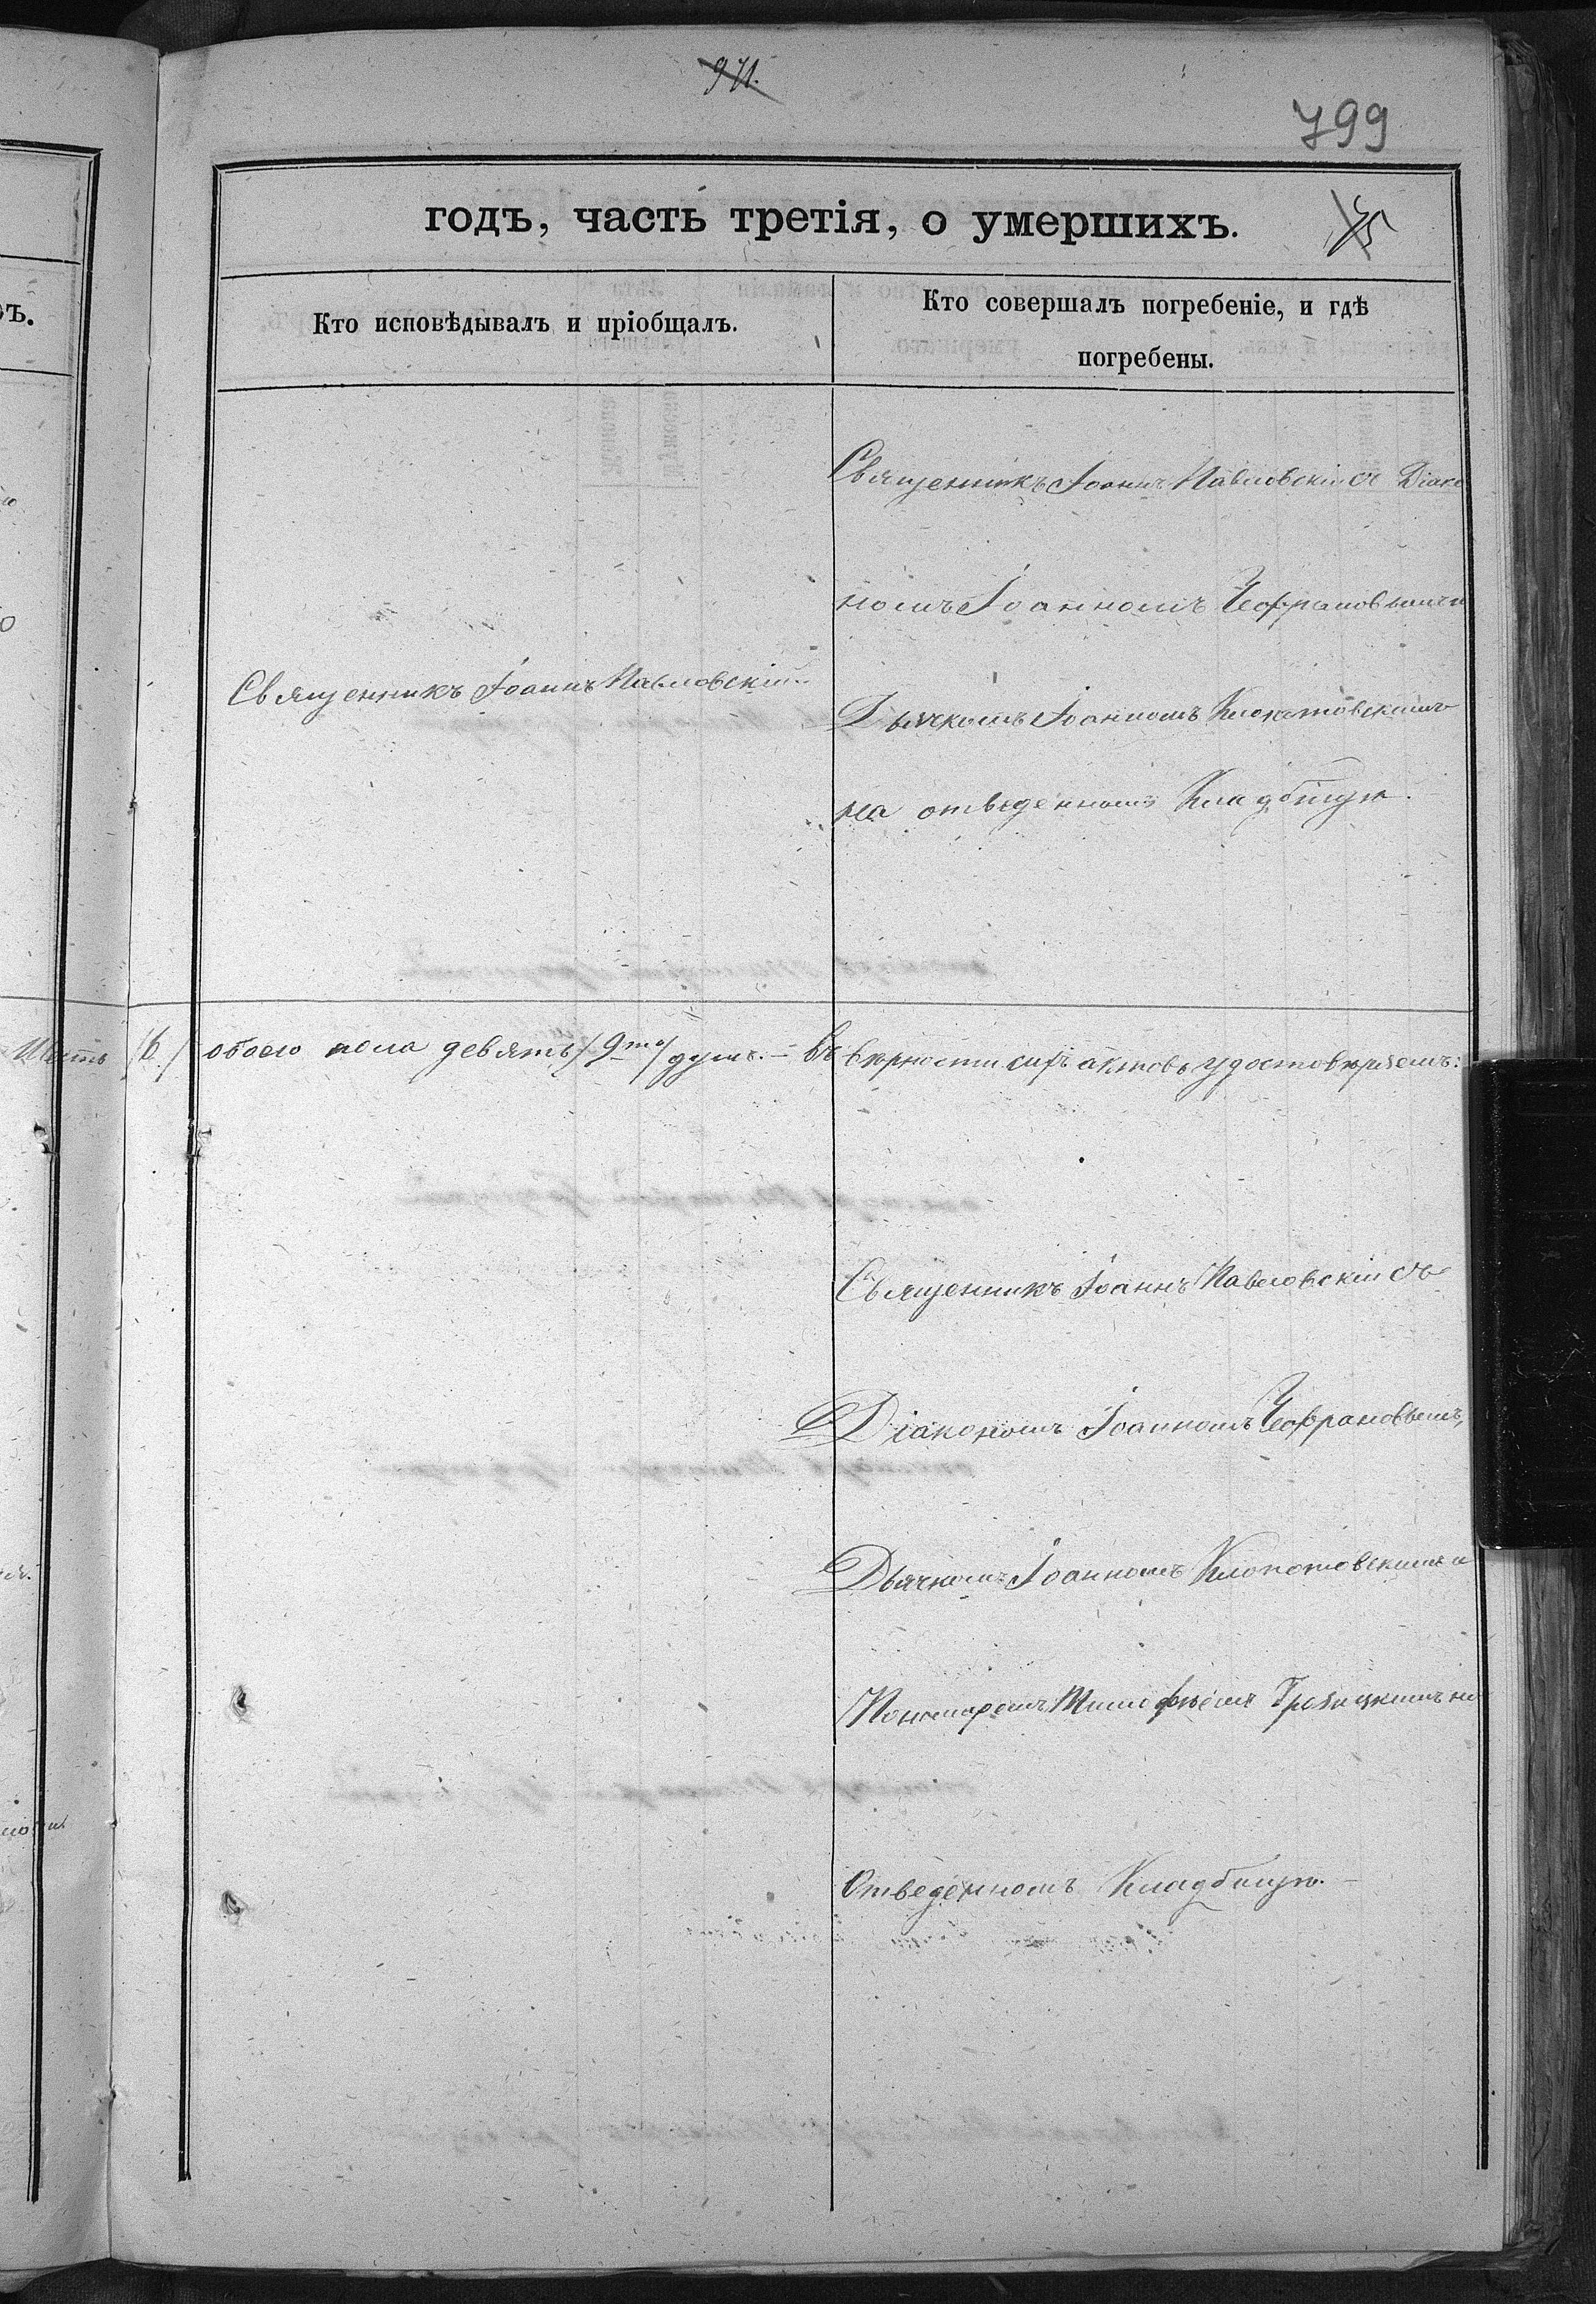 971.
799
годъ, часть третія, о умершихъ.
Кто исповѣдывалъ и пріобщалъ.
Кто совершалъ погребеніе, и гдѣ
погребены.
Священникъ Іоаннъ Павловскій
Священникъ Іоаннъ Павловскій съ Діако
номъ Іоанномъ
Дьячкомъ Іоанномъ Клопотовскимъ
на отведенномъ Кладбищѣ.
Шесть /6/ обоего пола девять /9ть/ душъ. — Въ вѣрности сихъ актовъ удостовѣряемъ:
Священникъ Іоаннъ Павловскій съ
Діакономъ Іоанномъ
Дьячкомъ Іоанномъ Клопотовскимъ и
Пономаремъ Тимофѣемъ на
Отведенномъ Кладбищѣ. —